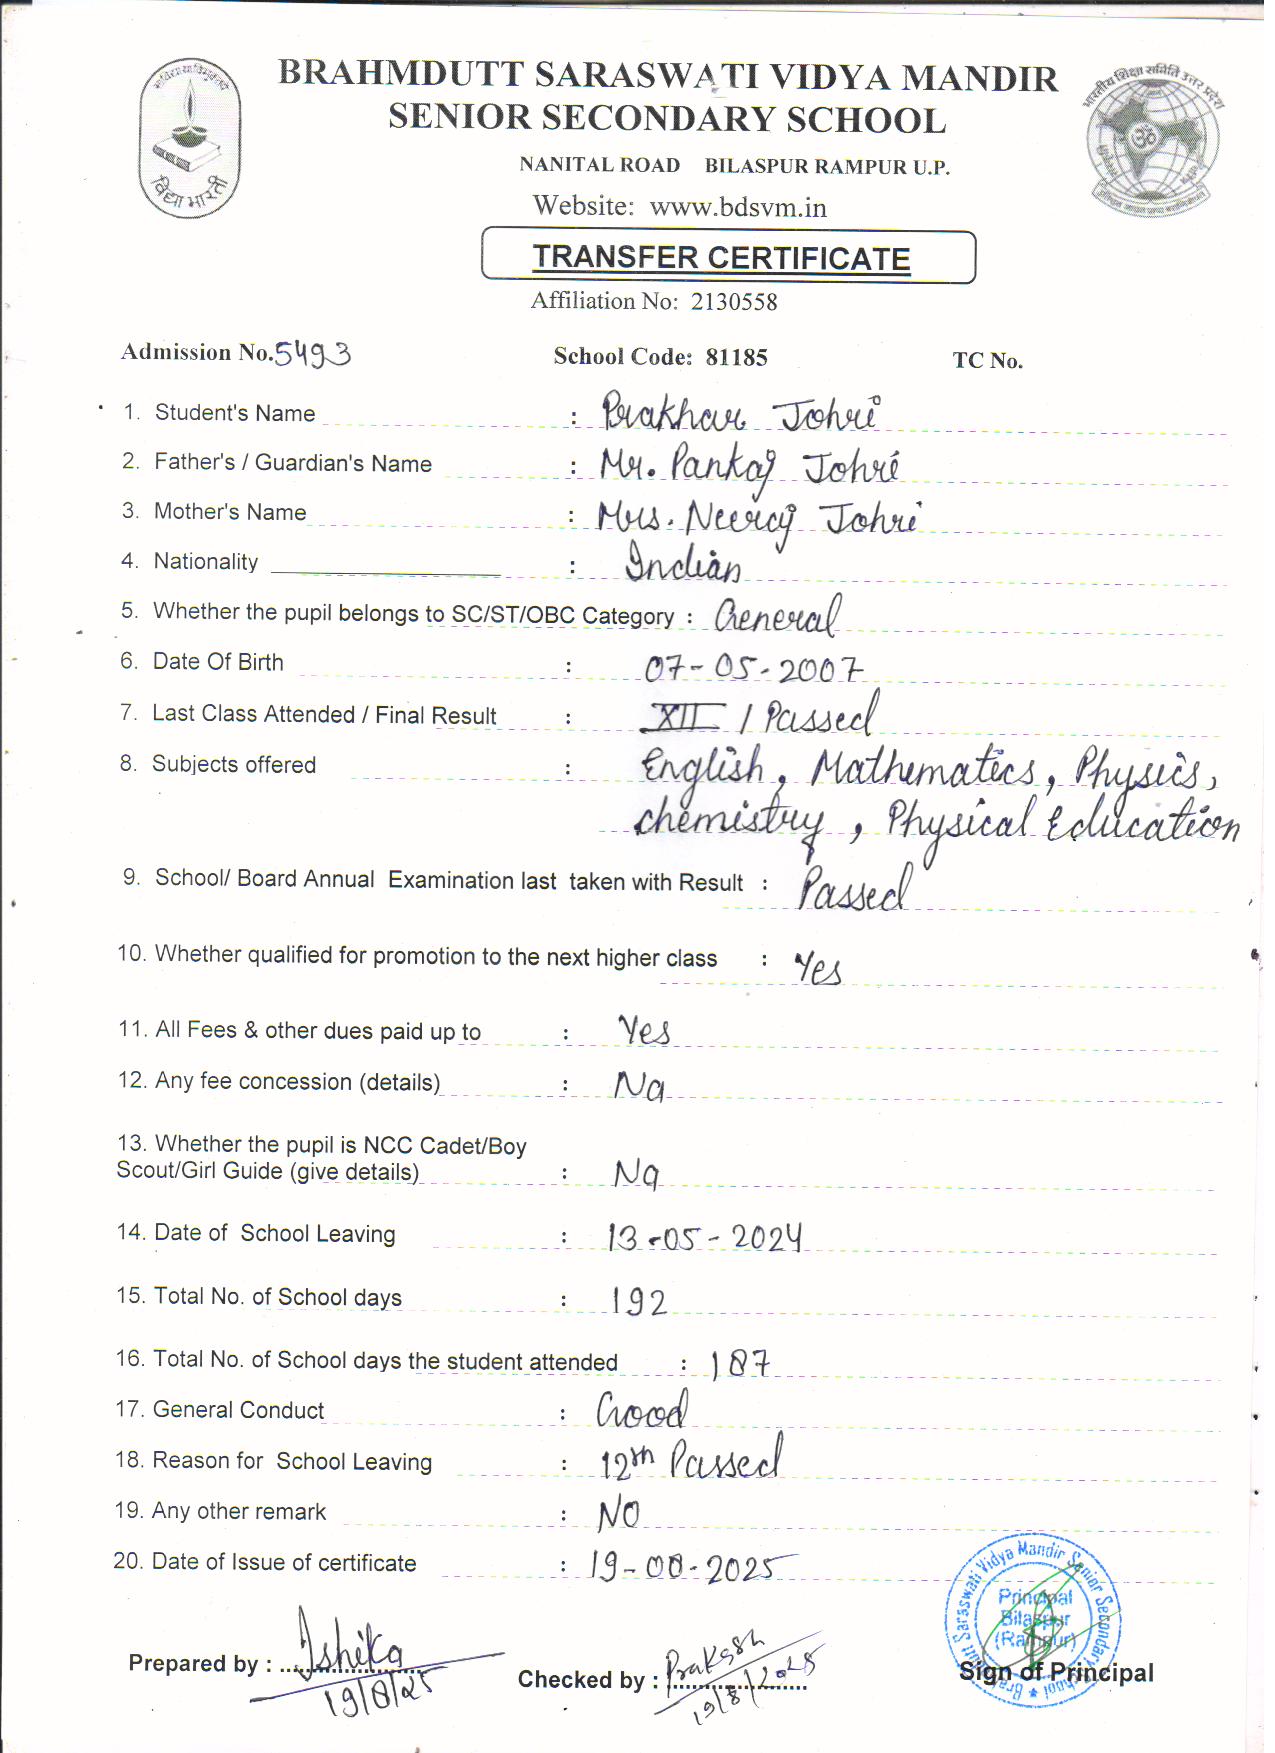 BRAHMDUTT SARASWATI VIDYA MANDIR
SENIOR SECONDARY SCHOOL
NANITAL ROAD BILASPUR RAMPUR U.P.
Website: www.bdsvm.in
विद्या भारती
भारतीय शिक्षा समिति उत्तर प्रदेश
TRANSFER CERTIFICATE
Affiliation No: 2130558
Admission No. 5493 School Code: 81185 TC No.
1. Student's Name : Prakhar Johri
2. Father's / Guardian's Name : Mr. Pankaj Johri
3. Mother's Name : Mrs. Neeraj Johri
4. Nationality : Indian
5. Whether the pupil belongs to SC/ST/OBC Category : General
6. Date Of Birth : 07-05-2007
7. Last Class Attended / Final Result : XII / Passed
8. Subjects offered : English, Mathematics, Physics,
chemistry, Physical Education
9. School/ Board Annual Examination last taken with Result : Passed
10. Whether qualified for promotion to the next higher class : Yes
11. All Fees & other dues paid up to : Yes
12. Any fee concession (details) : Na
13. Whether the pupil is NCC Cadet/Boy
Scout/Girl Guide (give details) : Na
14. Date of School Leaving : 13-05-2024
15. Total No. of School days : 192
16. Total No. of School days the student attended : 187
17. General Conduct : Good
18. Reason for School Leaving : 12th Passed
19. Any other remark : NO
20. Date of Issue of certificate : 19-08-2025
Saraswati Vidya Mandir Senior Secondary School
Principal
Bilaspur
(Rampur)
Prepared by : Ishika
19/8/25
Checked by : Prakash
19/8/2025
Sign of Principal